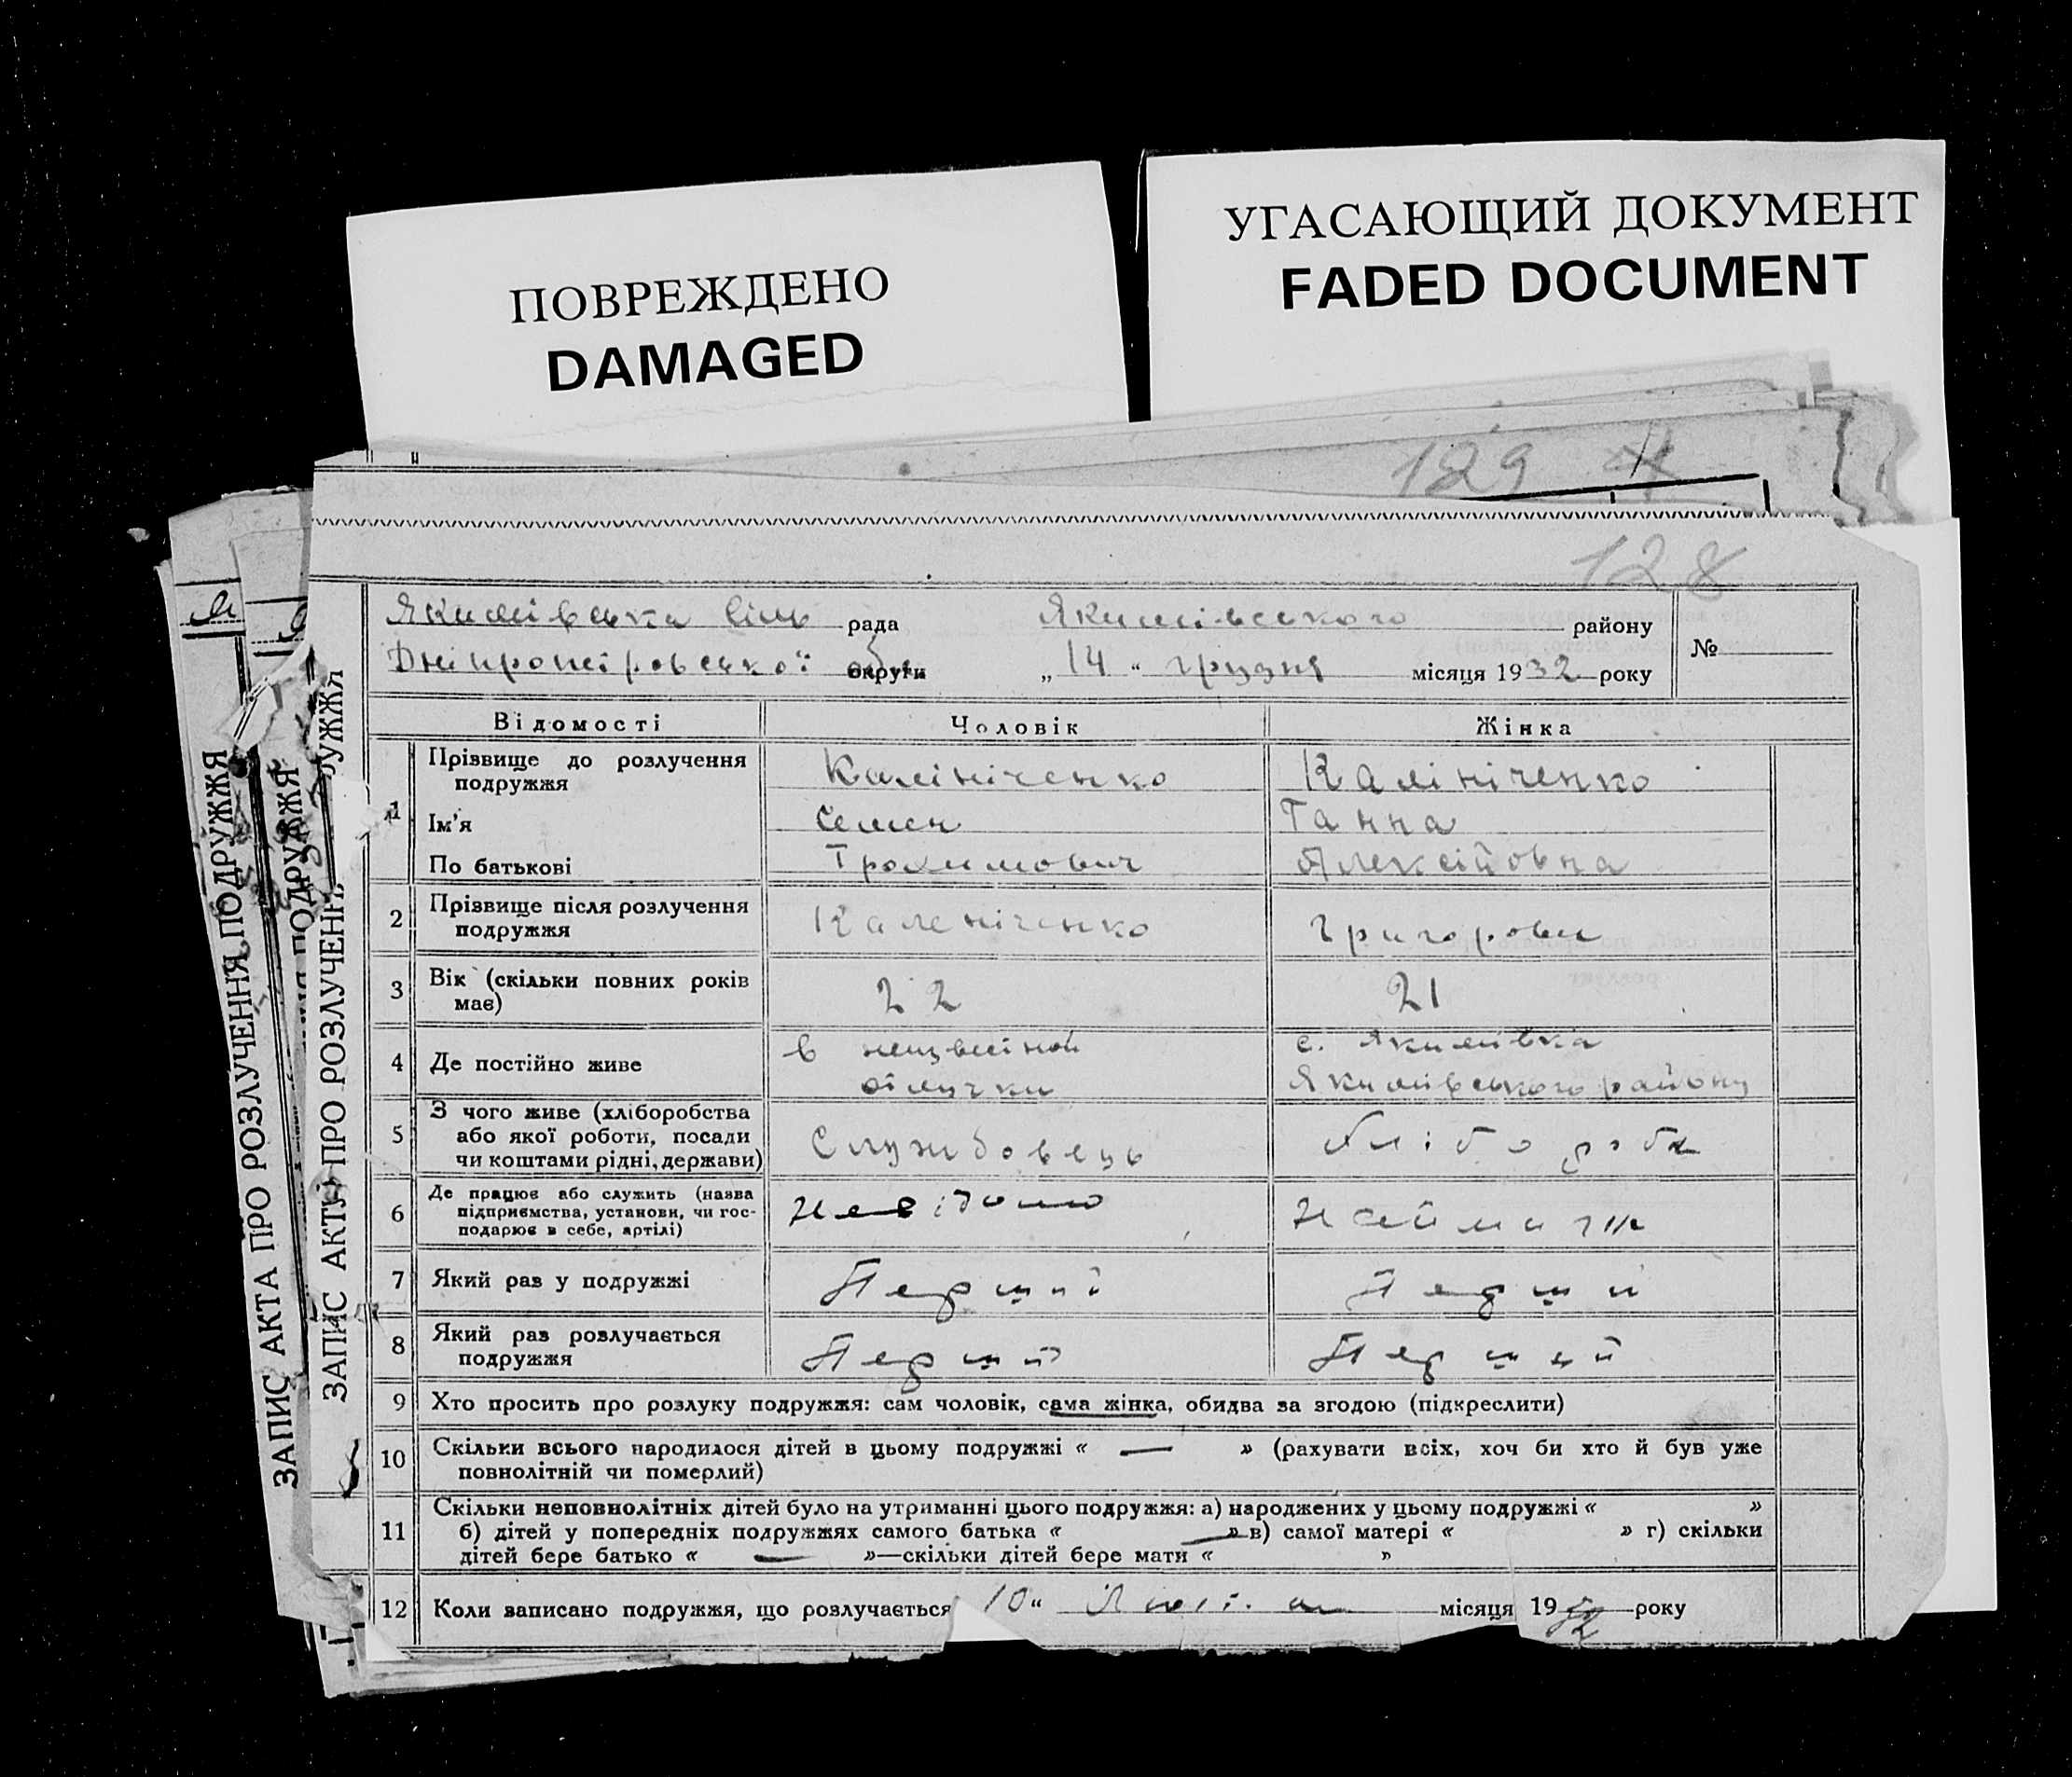 ПОВРЕЖДЕНО
DAMAGED
УГАСАЮЩИЙ ДОКУМЕНТ
FADED DOCUMENT
129
128
ЗАПИС АКТА ПРО РОЗЛУЧЕННЯ ПОДРУЖЖЯ
ПОДРУЖЖЯ
ЗАПИС АКТУ ПРО РОЗЛУЧЕНН УЖЖЯ
Якимівська сіль рада Якимівського району №
Дніпропетровської округи „14“ грудня місяця 1932 року
Відомості Чоловік Жінка
1 Прізвище до розлучення подружжя Калініченко Калініченко
Ім'я Семен Ганна
По батькові Трохимович Алексійовна
2 Прізвище після розлучення подружжя Каленіченко Григорова
3 Вік (скільки повних років має) 22 21
4 Де постійно живе в с. Якимівка
Якимівського району
5 З чого живе (хліборобства
або якої роботи, посади
чи коштами рідні, держави) Службовець Хлібороба
6 Де працює або служить (назва
підприємства, установи, чи гос-
подарює в себе, артілі) Невідомо
7 Який раз у подружжі Перший Перший
8 Який раз розлучається подружжя Перший Перший
9 Хто просить про розлуку подружжя: сам чоловік, сама жінка, обидва за згодою (підкреслити)
10 Скільки всього народилося дітей в цьому подружжі « — » (рахувати всіх, хоч би хто й був уже
повнолітній чи померлий)
11 Скільки неповнолітніх дітей було на утриманні цього подружжя: а) народжених у цьому подружжі « »
б) дітей у попередніх подружжях самого батька « — » в) самої матері « » г) скільки
дітей бере батько « — »—скільки дітей бере мати « »
12 Коли записано подружжя, що розлучається 10“ місяця 19 32 року